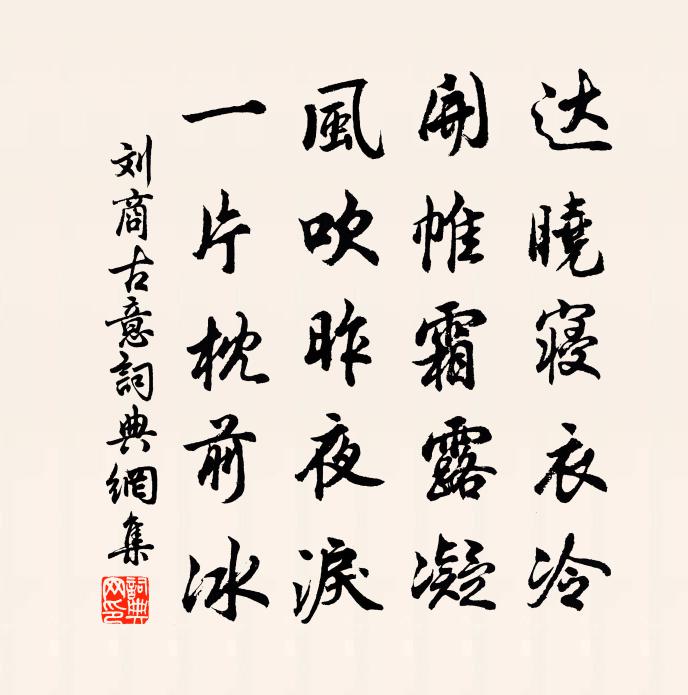 达曉寝衣冷
開帷霜露凝
風吹昨夜淚
一片枕前冰
刘商古意詞典網集
詞典网印